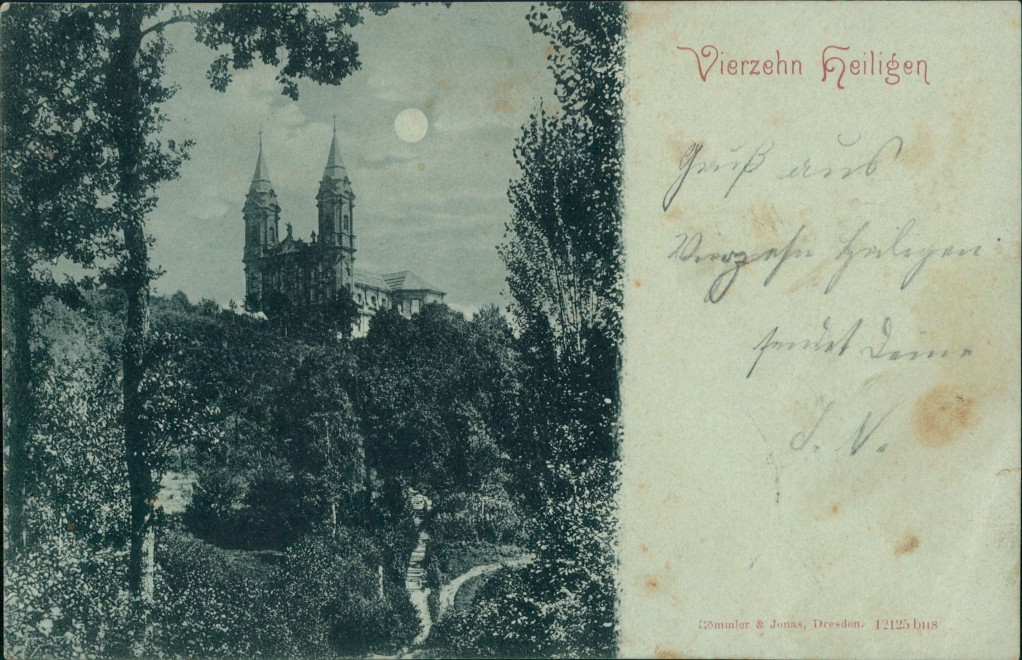 Vierzehn Heiligen
Gruß aus
Vierzehn Heiligen
sendet Deine
J. N.
Römmler & Jonas, Dresden. 12125 bııs